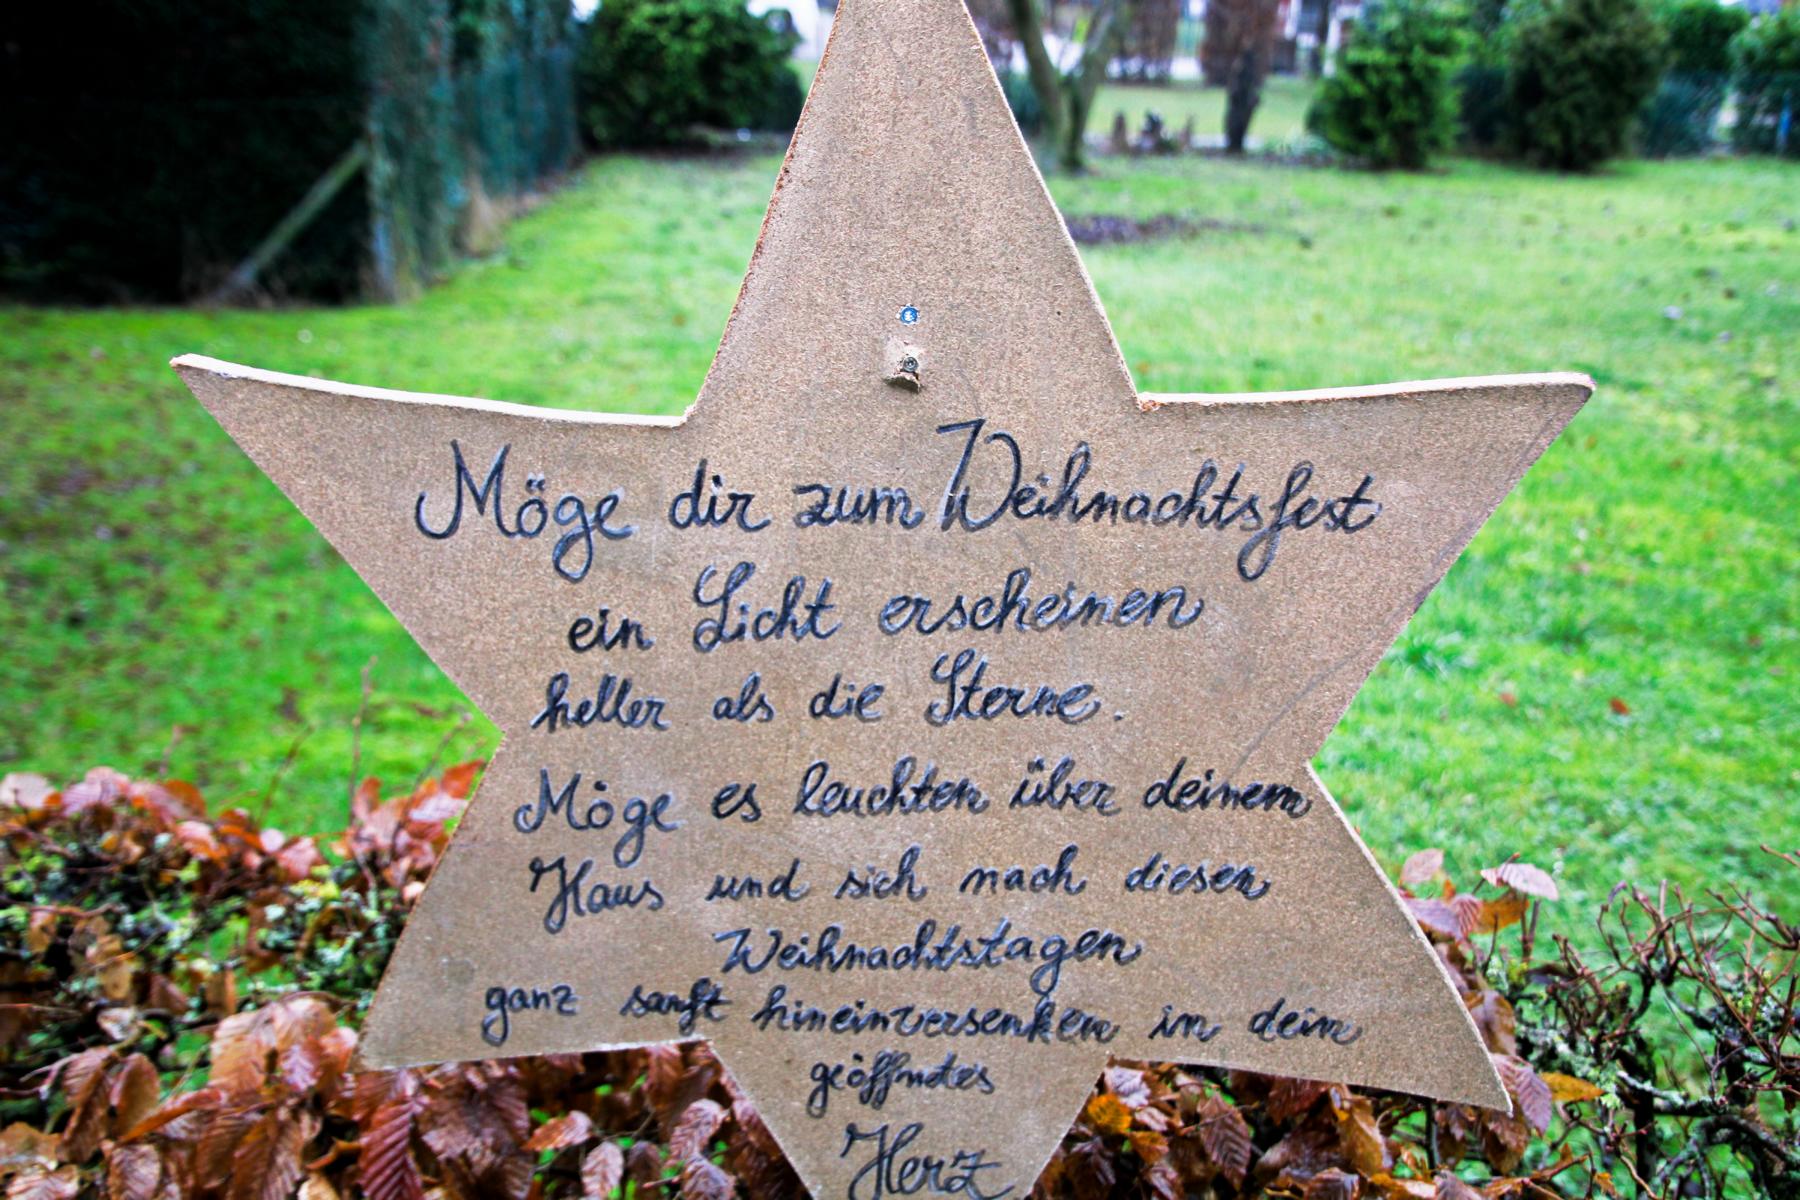 Möge dir zum Weihnachtsfest
ein Licht erscheinen
heller als die Sterne.
Möge es leuchten über deinem
Haus und sich nach diesen
Weihnachtstagen
ganz sanft hineinversenken in dein
geöffnetes
Herz